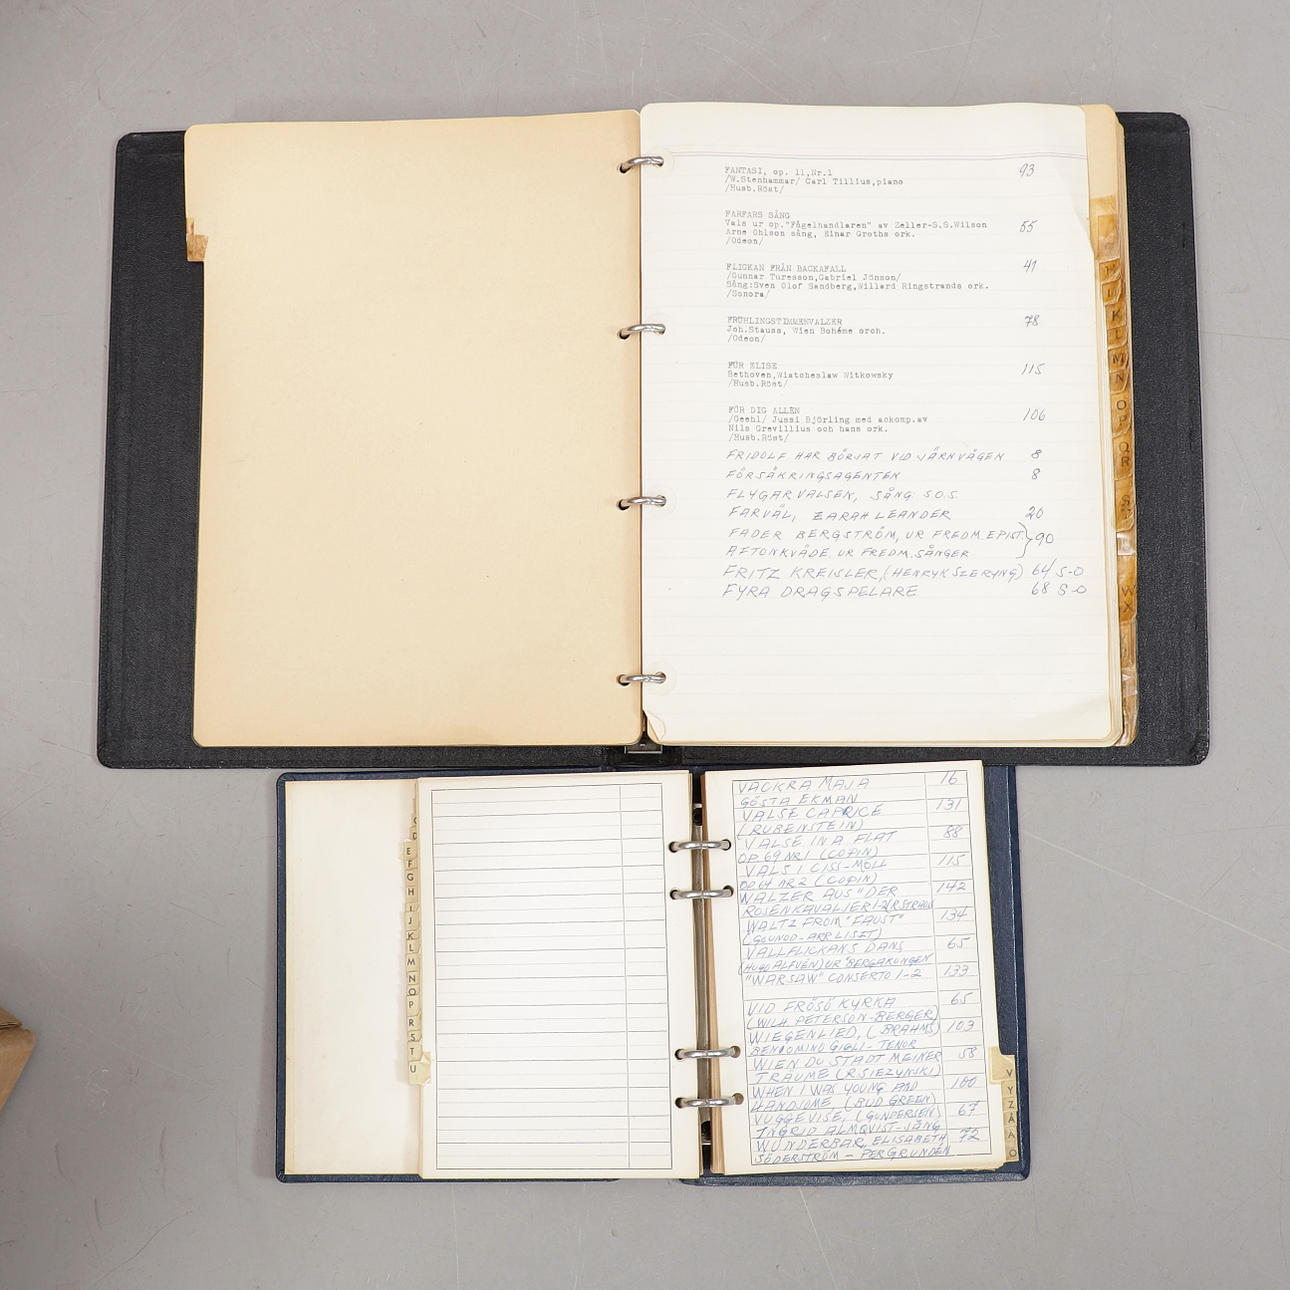 FANTASI, op. 11,Nr.1 93
/W.Stenhammar/ Carl Tillius,piano
/Husb.Röst/
FARFARS SÅNG 55
Vals ur op."Fågelhandlaren" av Zeller-S.S.Wilson
Arne Ohlson sång, Einar Groths ork.
/Odeon/
FLICKAN FRÅN BACKAFALL 41
/Gunnar Turesson,Gabriel Jönson/
Sång:Sven Olof Sandberg,Willard Ringstrands ork.
/Sonora/
FRÜHLINGSTIMMENVALZER 78
Joh.Stauss, Wien Bohéme orch.
/Odeon/
FÜR ELISE 115
Bethoven,Wiatcheslaw Witkowsky
/Husb.Röst/
FÖR DIG ALLEN 106
/Geehl/ Jussi Björling med ackomp.av
Nils Grevillius och hans ork.
/Husb.Röst/
FRIDOLF HAR BÖRJAT VID JÄRNVÄGEN 8
FÖRSÄKRINGSAGENTEN 8
FLYGARVALSEN, SÅNG S.O.S.
FARVÄL, ZARAH LEANDER 20
FADER BERGSTRÖM, UR FREDM.EPIST. } 90
AFTONKVÄDE. UR FREDM.SÅNGER
FRITZ KREISLER,(HENRYK SZERYNG) 64 S-O
FYRA DRAGSPELARE 68 S-O
H
I
K
L
M
N
O
P
QR
S
W
X
VACKRA MAJA 16
GÖSTA EKMAN
VALSE CAPRICE 131
(RUBENSTEIN)
VALSE IN A FLAT 88
OP 69 NR1 (COPIN)
VALS I CISS-MOLL 115
OP.64 NR 2 (COPIN)
WALZER AUS "DER 142
ROSENKAVALIER 1-2(R.STRAUS
WALTZ FROM "FAUST" 134
(GOUNOD-ARR LISZT)
VALLFLICKANS DANS 65
(HUGO ALFVÉN) UR "BERGAKUNGEN
"WARSAW" CONSERTO 1-2 133
VID FRÖSÖ KYRKA 65
(WILH PETERSON-BERGER)
WIEGENLIED, (BRAHMS) 103
BENJOMINO GIGLI - TENOR
WIEN DU STADT MEINER 58
TRÄUME (R.SIEZYNSKI)
WHEN I WAS YOUNG AND 100
HANDSOME (BUD GREEN)
VUGGEVISE, (GUNDERSEN) 67
INGRID ALMQVIST-SÅNG
WUNDERBAR, ELISABETH 72
SÖDERSTRÖM - PER GRUNDÉN
D
E
F
G
H
I
J
K
L
M
N
O
P
R
S
T
U
V
Y
Z
Å
Ä
Ö